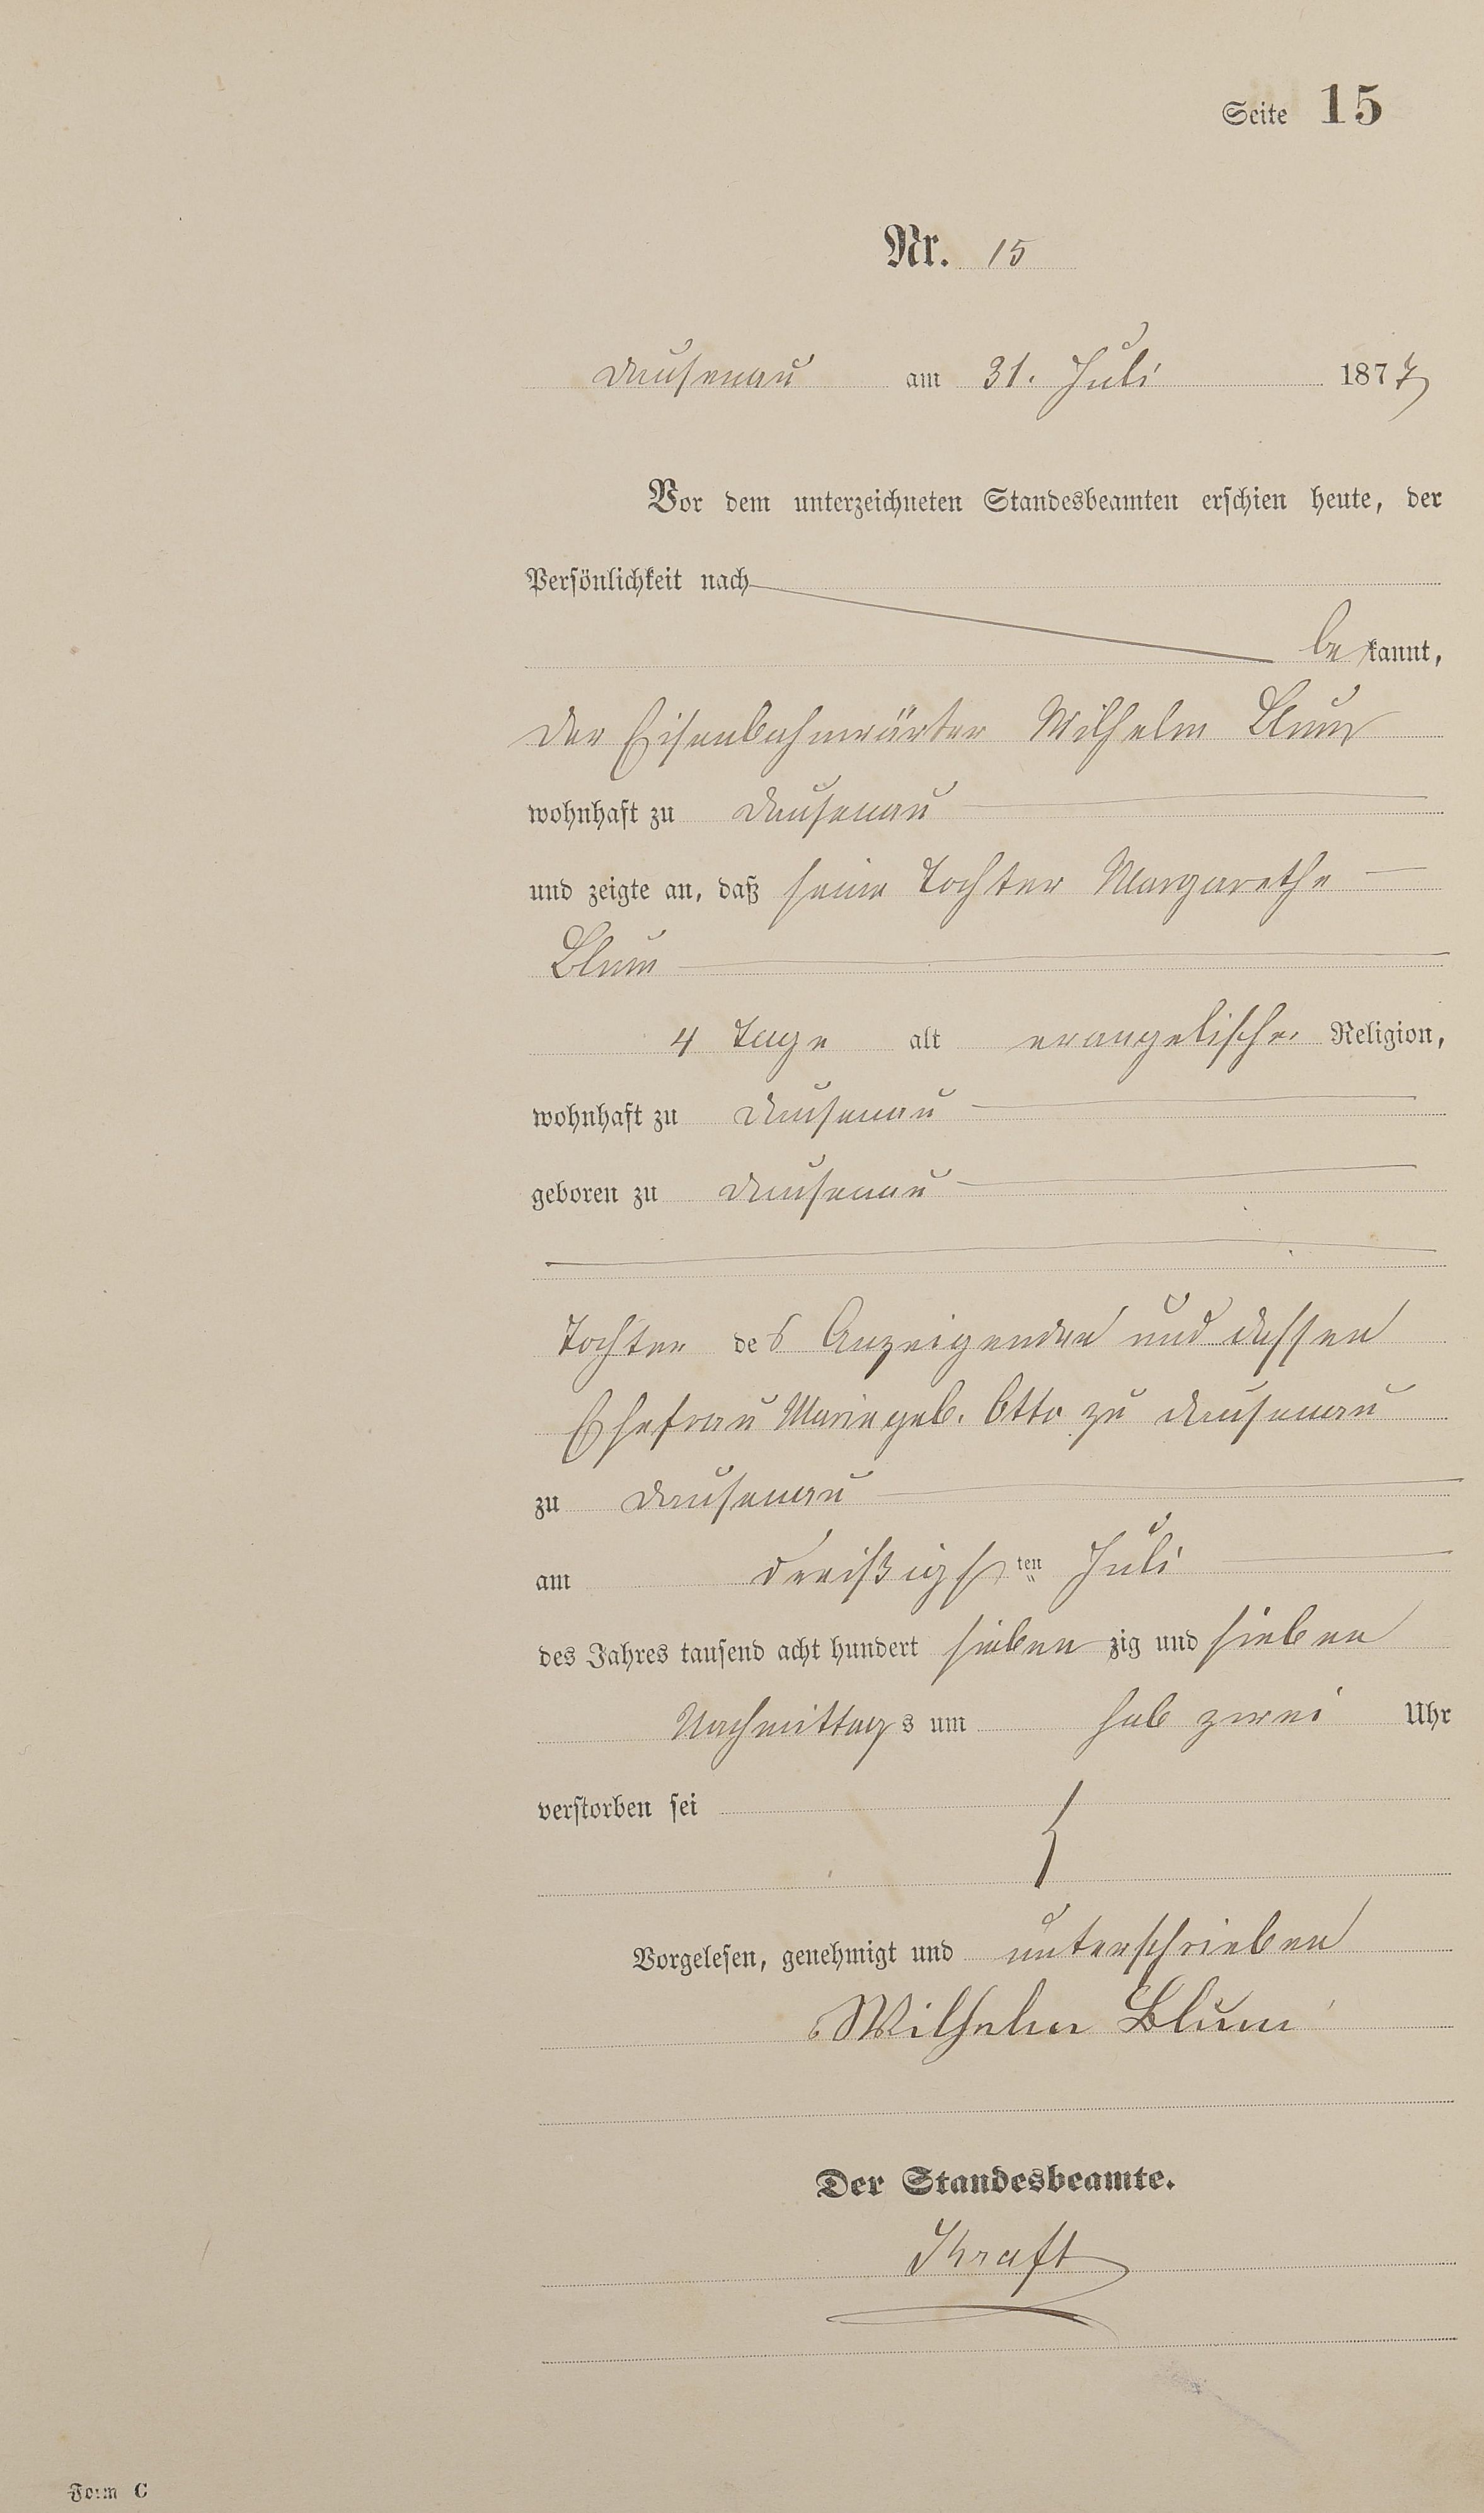 Seite 15
Nr. 15
Dausenau am 31. Juli 1877
Vor dem unterzeichneten Standesbeamten erschien heute, der
Persönlichkeit nach
bekannt,
der Eisenbahnwärter Wilhelm Blum
wohnhaft zu Dausenau
und zeigte an, daß seine Tochter Margarethe
Blum
4 Tage alt evangelischer Religion,
wohnhaft zu Dausenau
geboren zu Dausenau
Tochter des Anzeigenden und dessen
Ehefrau Marie geb. Otto zu Dausenau
zu Dausenau
am dreißigsten Juli
des Jahres tausend acht hundert siebenzig und sieben
Nachmittags um halb zwei Uhr
verstorben sei
Vorgelesen, genehmigt und unterschrieben
Wilhelm Blum
Der Standesbeamte.
Kraft
Form C